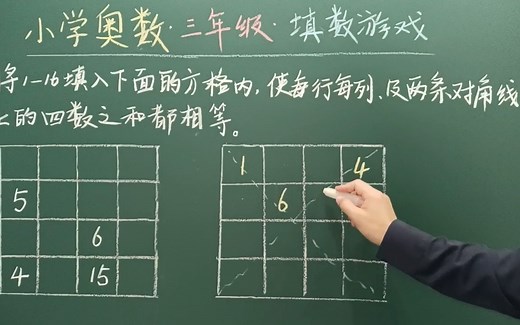 小学奥数·三年级·填数游戏
将1-16填入下面的方格内,使每行每列、及两条对角线
上的四数之和都相等。
1 4
5 6
6
4 15